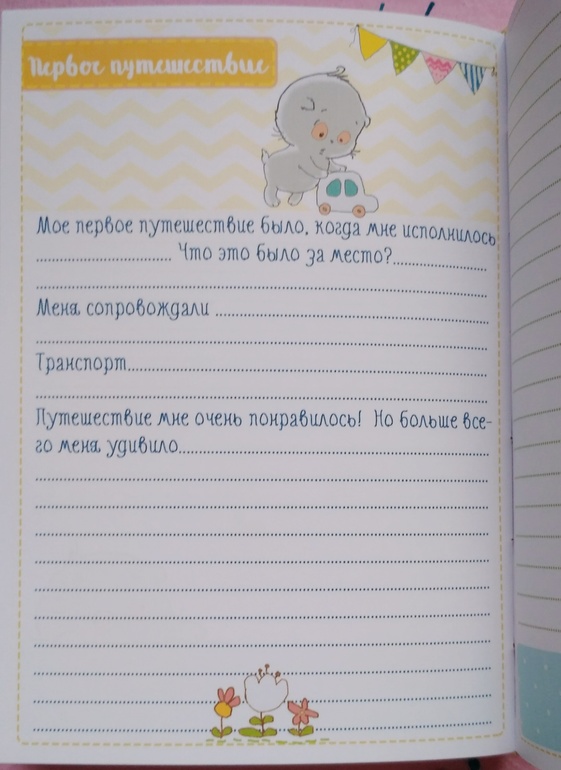 Первое путешествие
Мое первое путешествие было, когда мне исполнилось
........................... Что это было за место?....................
Меня сопровождали ........................................................
Транспорт..........................................................................
Путешествие мне очень понравилось! Но больше все-
го меня удивило................................................................